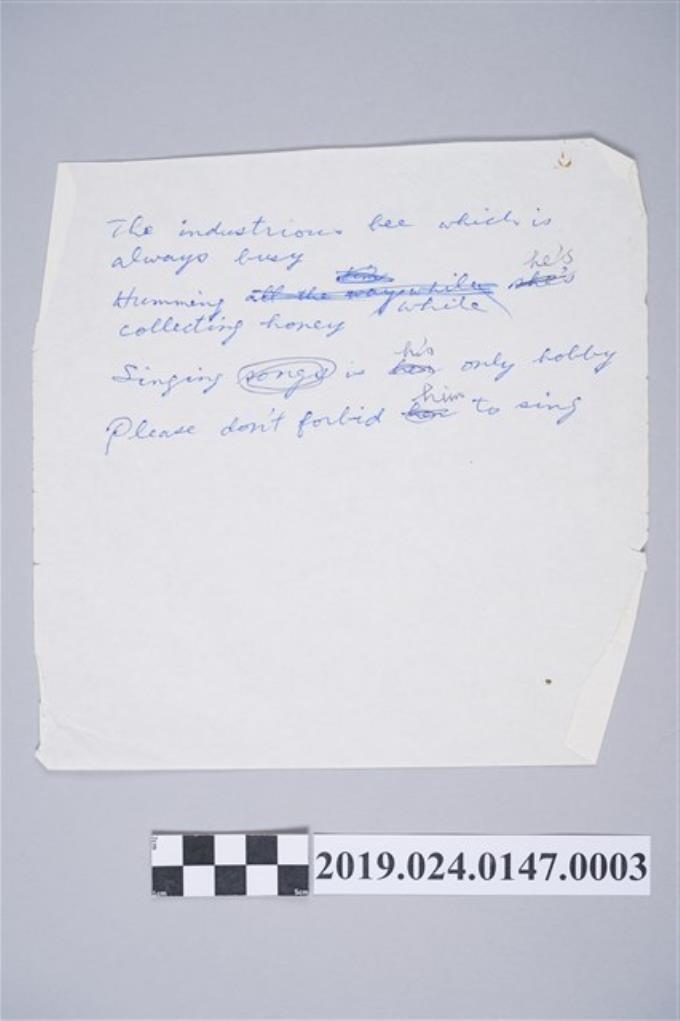 The industrious bee which is
always busy
he's
Humming all the way while she's
while
collecting honey
his
Singing songs is her only hobby
him
Please don't forbid her to sing
2019.024.0147.0003
5cm